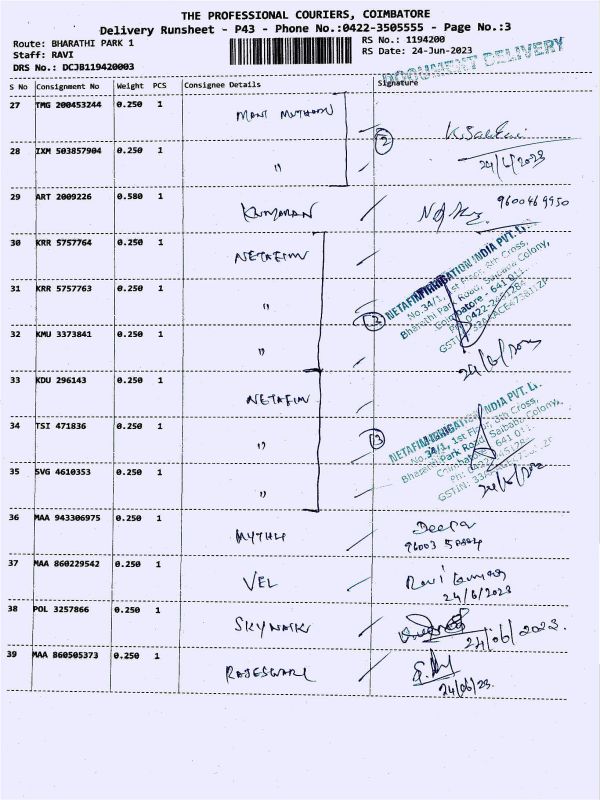 THE PROFESSIONAL COURIERS, COIMBATORE
Delivery Runsheet - P43 - Phone No.:0422-3505555 - Page No.:3
Route: BHARATHI PARK 1
RS No.: 1194200
Staff: RAVI
RS Date: 24-Jun-2023
DRS No.: DCJB119420003
DOCUMENT DELIVERY
S No Consignment No Weight PCS Consignee Details Signature
27 TMG 200453244 0.250 1
28 IXM 503857904 0.250 1 "
2
24/6/2023
29 ART 2009226 0.580 1 KUMARAN
9600469950
30 KRR 5757764 0.250 1 NETAFIM
31 KRR 5757763 0.250 1 "
32 KMU 3373841 0.250 1 "
NETAFIM IRRIGATION INDIA PVT. LT.
No.34/1, 1st Floor, 8th Cross,
Bharathi Park Road, Saibaba Colony,
Coimbatore - 641 011.
33 KDU 296143 0.250 1 NETAFIM
34 TSI 471836 0.250 1 "
35 SVG 4610353 0.250 1 "
3
NETAFIM IRRIGATION INDIA PVT. LT.
No.34/1, 1st Floor, 8th Cross,
Bharathi Park Road, Saibaba Colony,
36 MAA 943306975 0.250 1 MYTHLI
Deepa
37 MAA 860229542 0.250 1 VEL
Ravi Kumar
24/6/2023
38 POL 3257866 0.250 1
24/06/2023.
39 MAA 860505373 0.250 1 RAJESWARI
24/06/23.